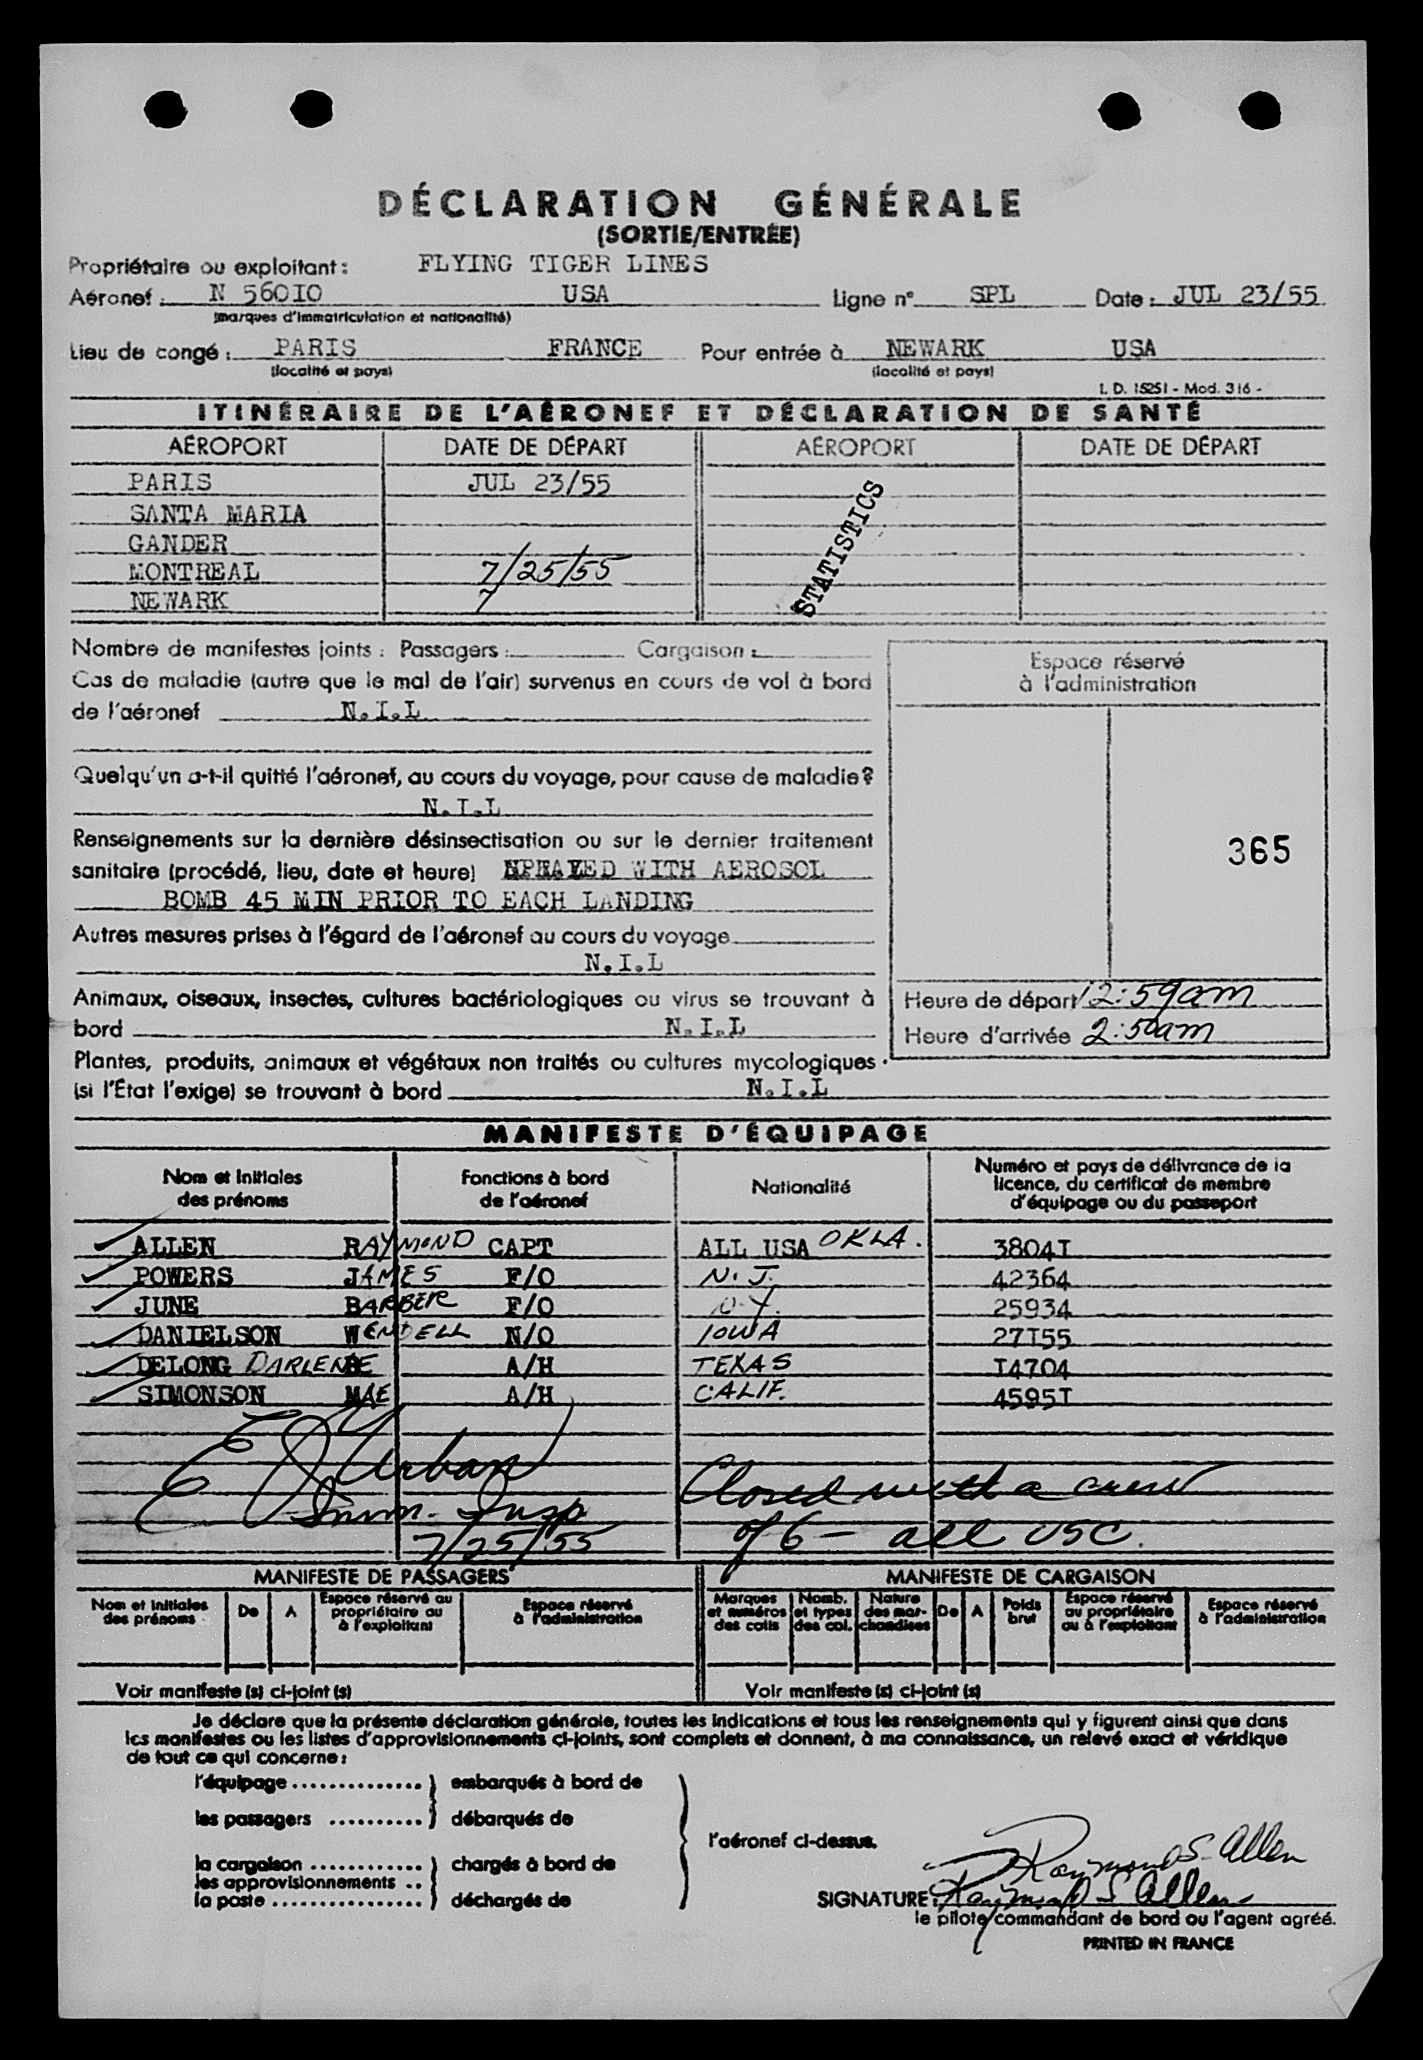 DÉCLARATION GÉNÉRALE
(SORTIE/ENTRÉE)
Propriétaire ou exploitant : FLYING TIGER LINES
Aéronef : N 56OIO USA Ligne n° SPL Date : JUL 23/55
(marques d'immatriculation et nationalité)
Lieu de congé : PARIS FRANCE Pour entrée à NEWARK USA
(localité et pays) (localité et pays)
I. D. 15251 - Mod. 316 -
ITINÉRAIRE DE L'AÉRONEF ET DÉCLARATION DE SANTÉ
AÉROPORT DATE DE DÉPART AÉROPORT DATE DE DÉPART
PARIS JUL 23/55
SANTA MARIA
GANDER
MONTREAL 7/25/55
NEWARK
STATISTICS
Nombre de manifestes joints : Passagers : Cargaison :
Cas de maladie (autre que le mal de l'air) survenus en cours de vol à bord
de l'aéronef N.I.L
Quelqu'un a-t-il quitté l'aéronef, au cours du voyage, pour cause de maladie ?
N.I.L
Renseignements sur la dernière désinsectisation ou sur le dernier traitement
sanitaire (procédé, lieu, date et heure) SPRAYED WITH AEROSOL
BOMB 45 MIN PRIOR TO EACH LANDING
Autres mesures prises à l'égard de l'aéronef au cours du voyage
N.I.L
Animaux, oiseaux, insectes, cultures bactériologiques ou virus se trouvant à
bord N.I.L
Plantes, produits, animaux et végétaux non traités ou cultures mycologiques
(si l'État l'exige) se trouvant à bord N.I.L
Espace réservé
à l'administration
365
Heure de départ 12:59am
Heure d'arrivée 2:50am
MANIFESTE D'ÉQUIPAGE
Nom et Initiales des prénoms Fonctions à bord de l'aéronef Nationalité Numéro et pays de délivrance de la licence, du certificat de membre d'équipage ou du passeport
ALLEN RAYMOND CAPT ALL USA OKLA. 3804I
POWERS JAMES F/O N.J. 42364
JUNE BARBER F/O N.Y. 25934
DANIELSON WENDELL N/O IOWA 27I55
DELONG DARLENE A/H TEXAS I4704
SIMONSON MAE A/H CALIF. 4595I
E J Urban
Imm. Insp
7/25/55
Closed with a crew
of 6 - all USC.
MANIFESTE DE PASSAGERS MANIFESTE DE CARGAISON
Nom et Initiales des prénoms De A Espace réservé au propriétaire ou à l'exploitant Espace réservé à l'administration Marques et numéros des colis Nomb. et types des col. Nature des marchandises De A Poids brut Espace réservé au propriétaire ou à l'exploitant Espace réservé à l'administration
Voir manifeste (s) ci-joint (s) Voir manifeste (s) ci-joint (s)
Je déclare que la présente déclaration générale, toutes les indications et tous les renseignements qui y figurent ainsi que dans
les manifestes ou les listes d'approvisionnements ci-joints, sont complets et donnent, à ma connaissance, un relevé exact et véridique
de tout ce qui concerne :
l'équipage .............. } embarqués à bord de
les passagers .......... } débarqués de
l'aéronef ci-dessus.
la cargaison ............ } chargés à bord de
les approvisionnements ..
la poste ................ } déchargés de
Raymond S. Allen
SIGNATURE : Raymond S Allen
le pilote commandant de bord ou l'agent agréé.
PRINTED IN FRANCE